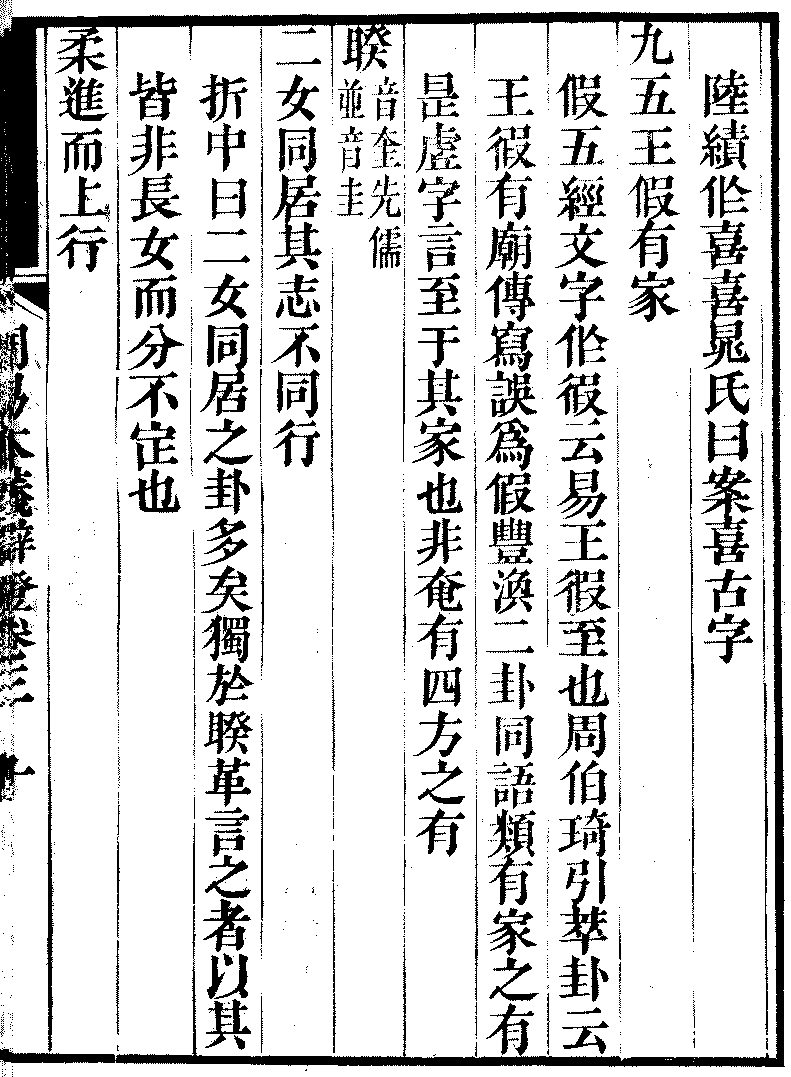 陸績作喜喜晁氏曰案喜古字
九五王假有家
假五經文字作徦云易王徦至也周伯琦引萃卦云
王徦有廟傳寫誤爲假豐渙二卦同語類有家之有
是虚字言至于其家也非奄有四方之有
睽
音奎先儒
並音圭
二女同居其志不同行
折中曰二女同居之卦多矣獨於睽革言之者以其
皆非長女而分不定也
柔進而上行
周易本義辯證卷三 九